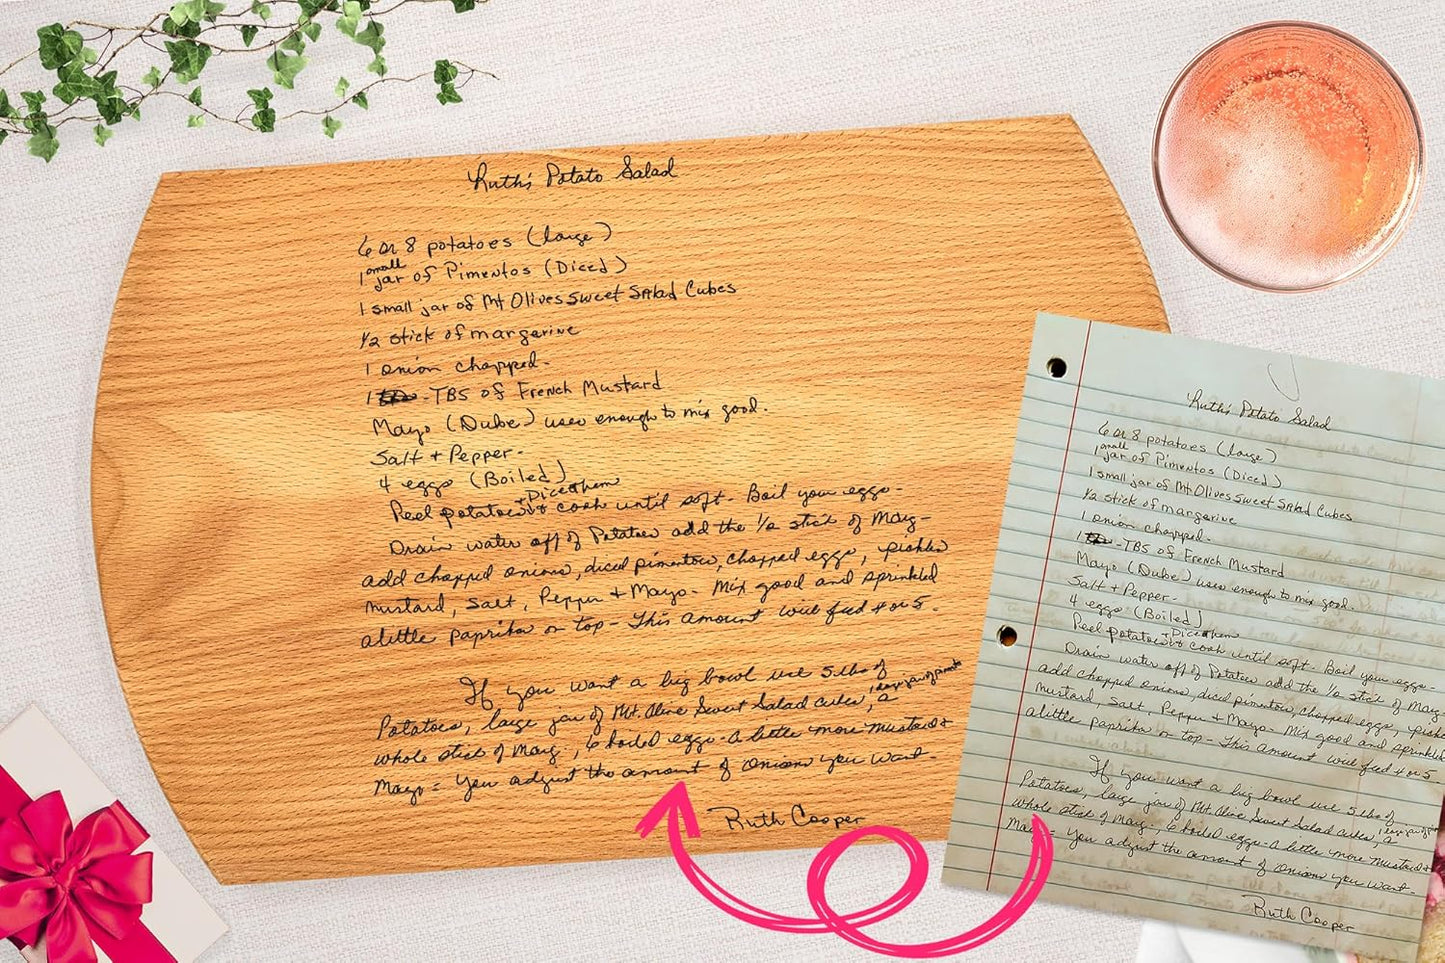 Ruth's Potato Salad
6 or 8 potatoes (large)
1 small jar of Pimentos (Diced)
1 small jar of Mt Olives Sweet Salad Cubes
1/2 stick of margarine
1 onion chopped-
1 -TBS of French Mustard
Mayo (Duke) uses enough to mix good.
Salt + Pepper-
4 eggs (Boiled)
Peel potatoes + Dice them cook until soft- Boil your eggs-
Drain water off of Potatoes add the 1/2 stick of Marg-
add chopped onions, diced pimentos, chopped eggs, pickles
mustard, Salt, Pepper + Mayo- Mix good and sprinkled
a little paprika on top- This amount will feed 4 or 5.
If you want a big bowl use 5 lbs of
Potatoes, large jar of Mt. Olive Sweet Salad cubes, 1 large jar of pimento, a
whole stick of Marg., 6 boiled eggs- a little more mustard +
Mayo = You adjust the amount of onions you want-
Ruth Cooper
Ruth's Potato Salad
6 or 8 potatoes (large)
1 small jar of Pimentos (Diced)
1 small jar of Mt Olives Sweet Salad Cubes
1/2 stick of margarine
1 onion chopped-
1 -TBS of French Mustard
Mayo (Duke) uses enough to mix good.
Salt + Pepper-
4 eggs (Boiled)
Peel potatoes + Dice them cook until soft- Boil your eggs-
Drain water off of Potatoes add the 1/2 stick of Marg
add chopped onions, diced pimentos, chopped eggs,
mustard, Salt, Pepper + Mayo- Mix good and sprinkled
a little paprika on top- This amount will feed 4 or 5.
If you want a big bowl use 5 lbs of
Potatoes, large jar of Mt. Olive Sweet Salad cubes, 1 large jar of a
whole stick of Marg., 6 boiled eggs- a little more mustard +
Mayo = You adjust the amount of onions you want-
Ruth Cooper